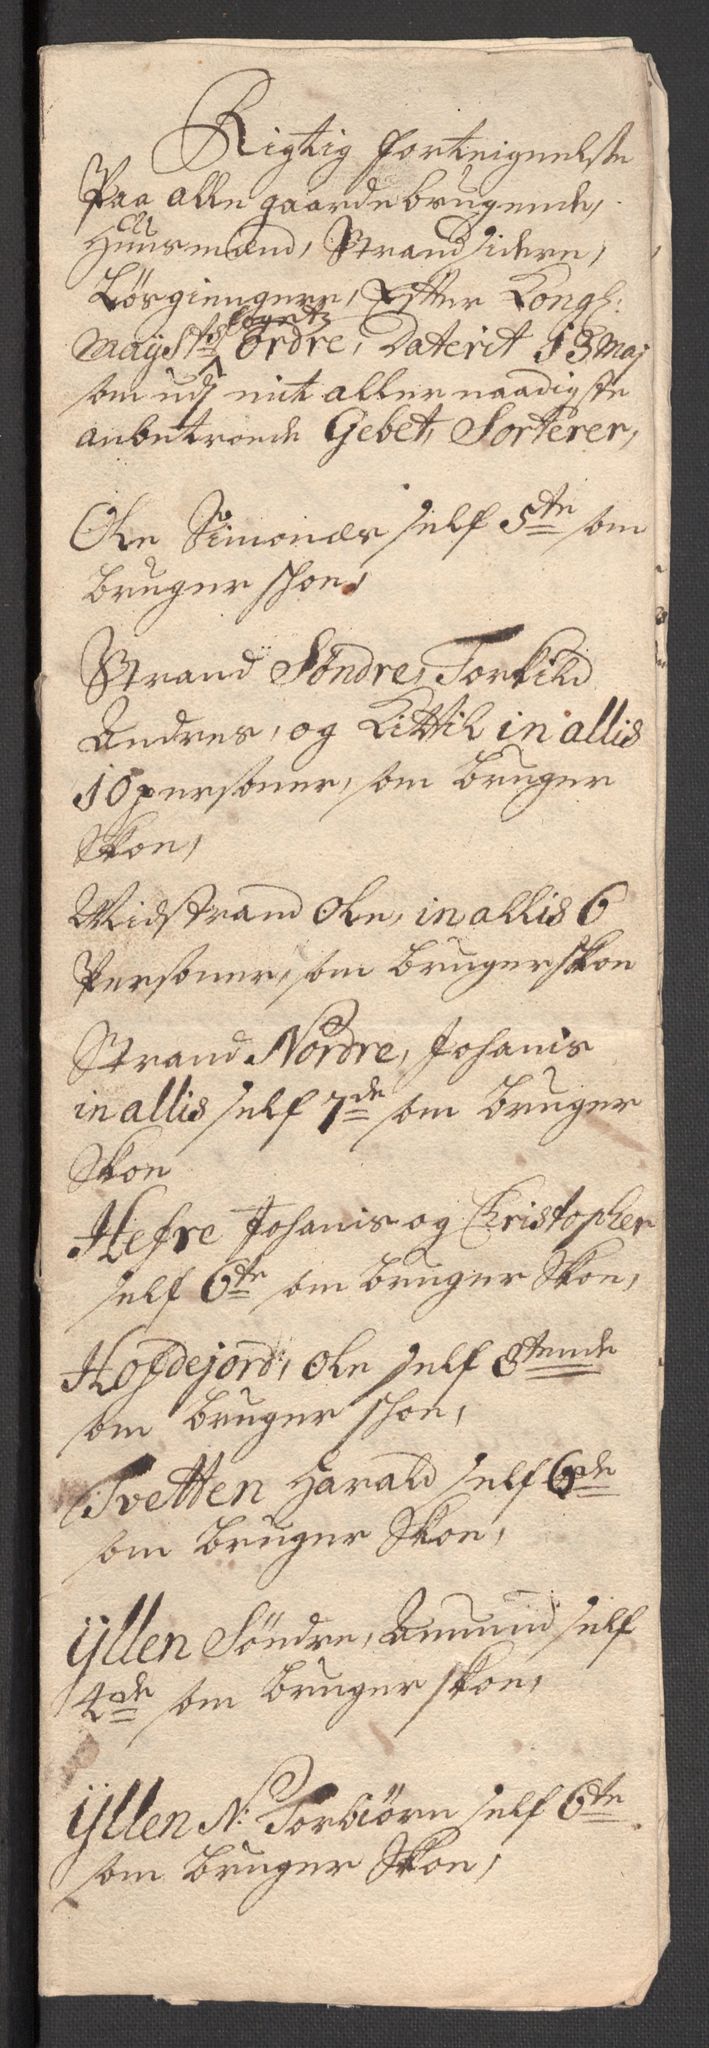 Rigtig forteignelse
Paa alle gaardebrugende,
Huusmænd, Strandsidere,
Løsgiengere, Efter Kongl:
Mayst: fogetz Ordre, Daterit 13 Maj
som udj mit aller naadigste
anbetroede Gebet, Sorterer,
Ole Simonæs self 5te som
bruger schoe,
Strand Søndre, Torkild
Andres, og Kittil in allis
10 personer, som bruger
Skoe,
Midstrand Ole, in allis 6
Personer, som bruger skoe
Strand Nordre, Johanis
in allis self 7de som bruger
Skoe
Hefre Johanis og Christopher
self 6te som bruger Skoe,
Hofdejord, Ole self 8tende
som bruger schoe,
Tvetten Harald self 6de
som bruger Skoe,
ÿllen Søndre, Amund self
4de som bruger skoe,
ÿllen N: Torbiørn self 6te
som bruger Skoe,